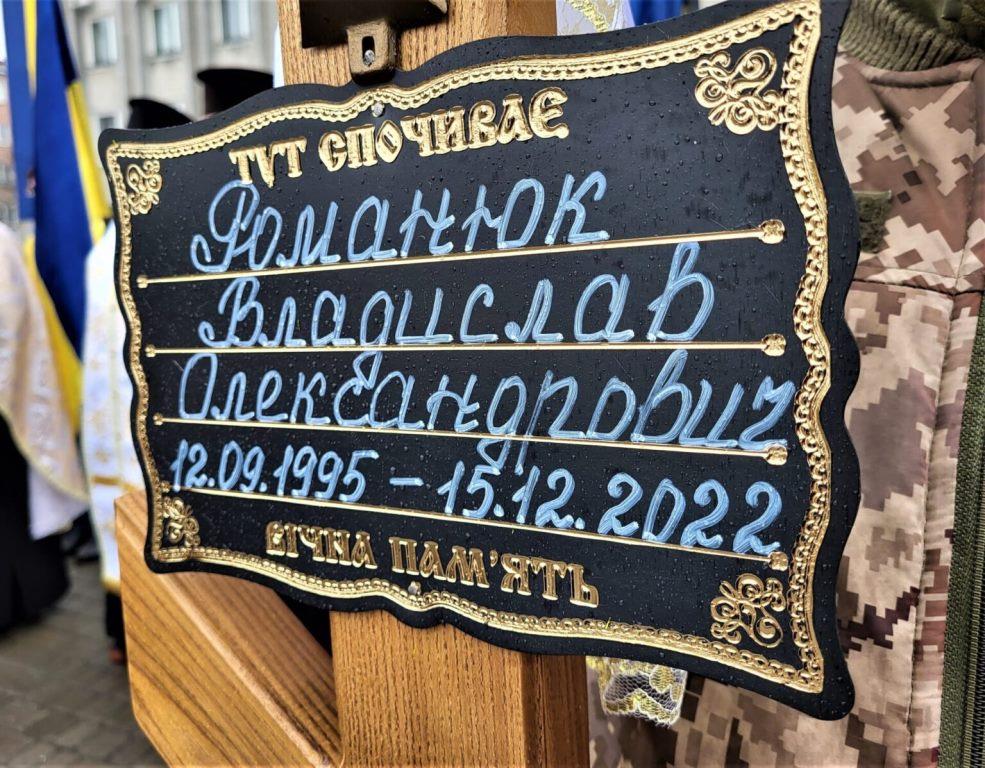 ТУТ СПОЧИВАЄ
Романюк
Владислав
Олександрович
12.09.1995 - 15.12.2022
ВІЧНА ПАМ'ЯТЬ